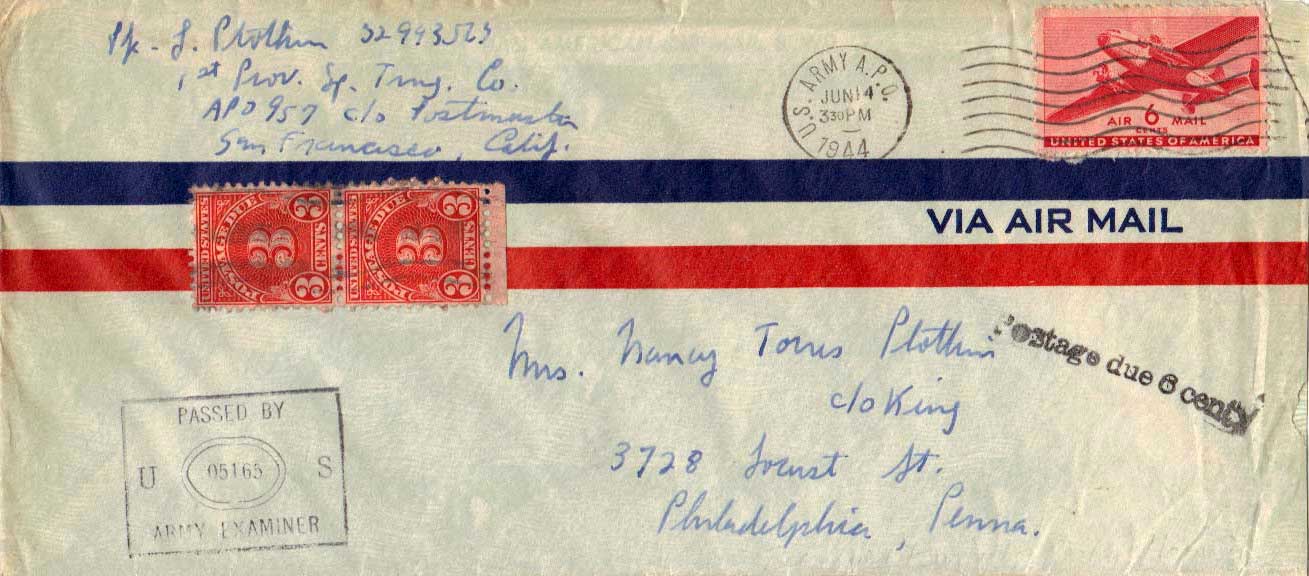 Pfc - J. Plotkin 32993563
1st Prov. Sp. Trng. Co.
APO 957 c/o Postmaster
San Francisco, Calif.
U.S. ARMY A.P.O.
JUN 14
330 PM
1944
AIR 6 MAIL
CENTS
UNITED STATES OF AMERICA
VIA AIR MAIL
UNITED STATES
POSTAGE DUE
3 3
33
CENTS
UNITED STATES
POSTAGE DUE
3 3
33
CENTS
Postage due 6 cents
Mrs. Nancy Torres Plotkin
c/o King
3728 Locust St.
Philadelphia, Penna.
PASSED BY
U 05165 S
ARMY EXAMINER